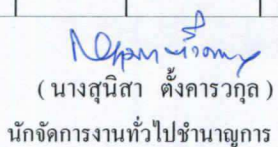 ( นางสุนิสา ตั้งคารวกุล )
นักจัดการงานทั่วไปชำนาญการ